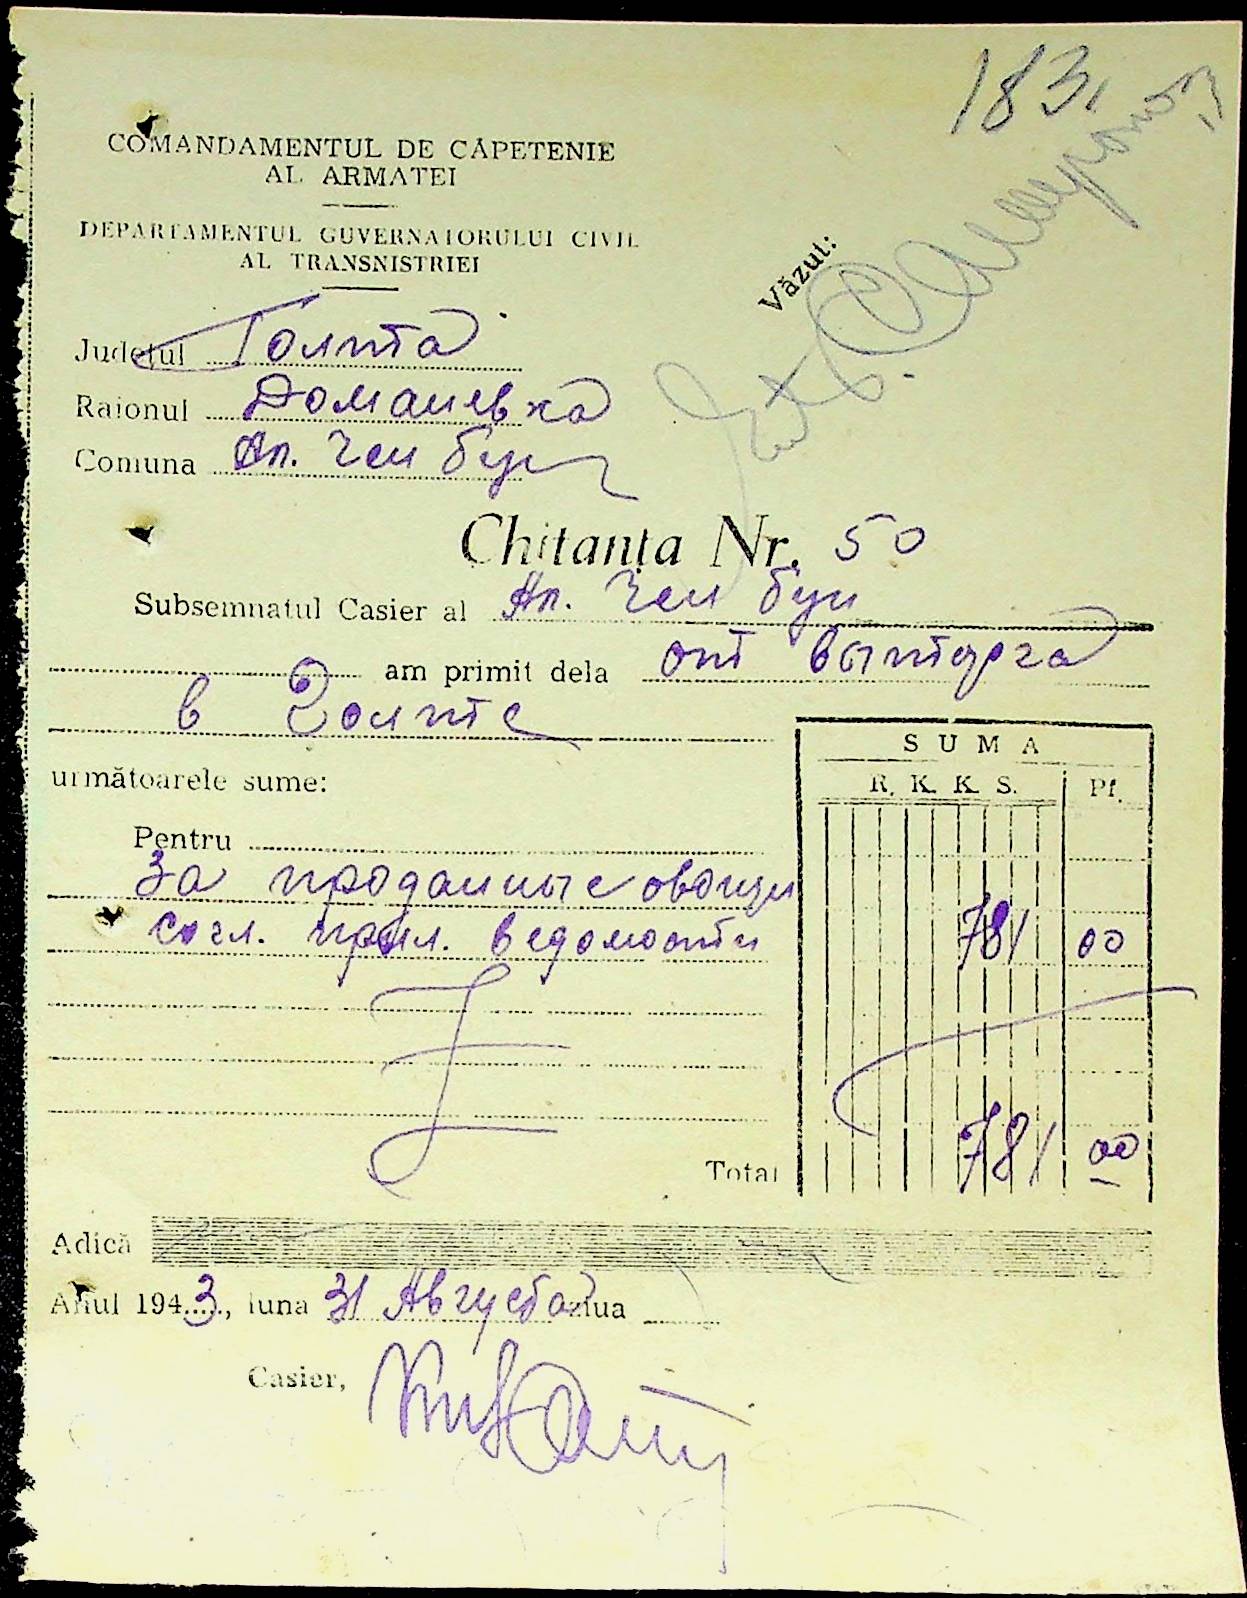 183
COMANDAMENTUL DE CĂPETENIE
AL ARMATEI
DEPARTAMENTUL GUVERNATORULUI CIVIL
AL TRANSNISTRIEI
Văzut:
Județul Голта
Raionul Доманевка
Comuna
Chitanța Nr. 50
Subsemnatul Casier al
am primit dela от выторга
в Голте
SUMA
R. K. K. S. Pf.
următoarele sume:
Pentru
за проданные овощи
согл. прил. ведомости 781 00
Total 781 00
Adică
Anul 1943, luna 31 Августа ziua
Casier,